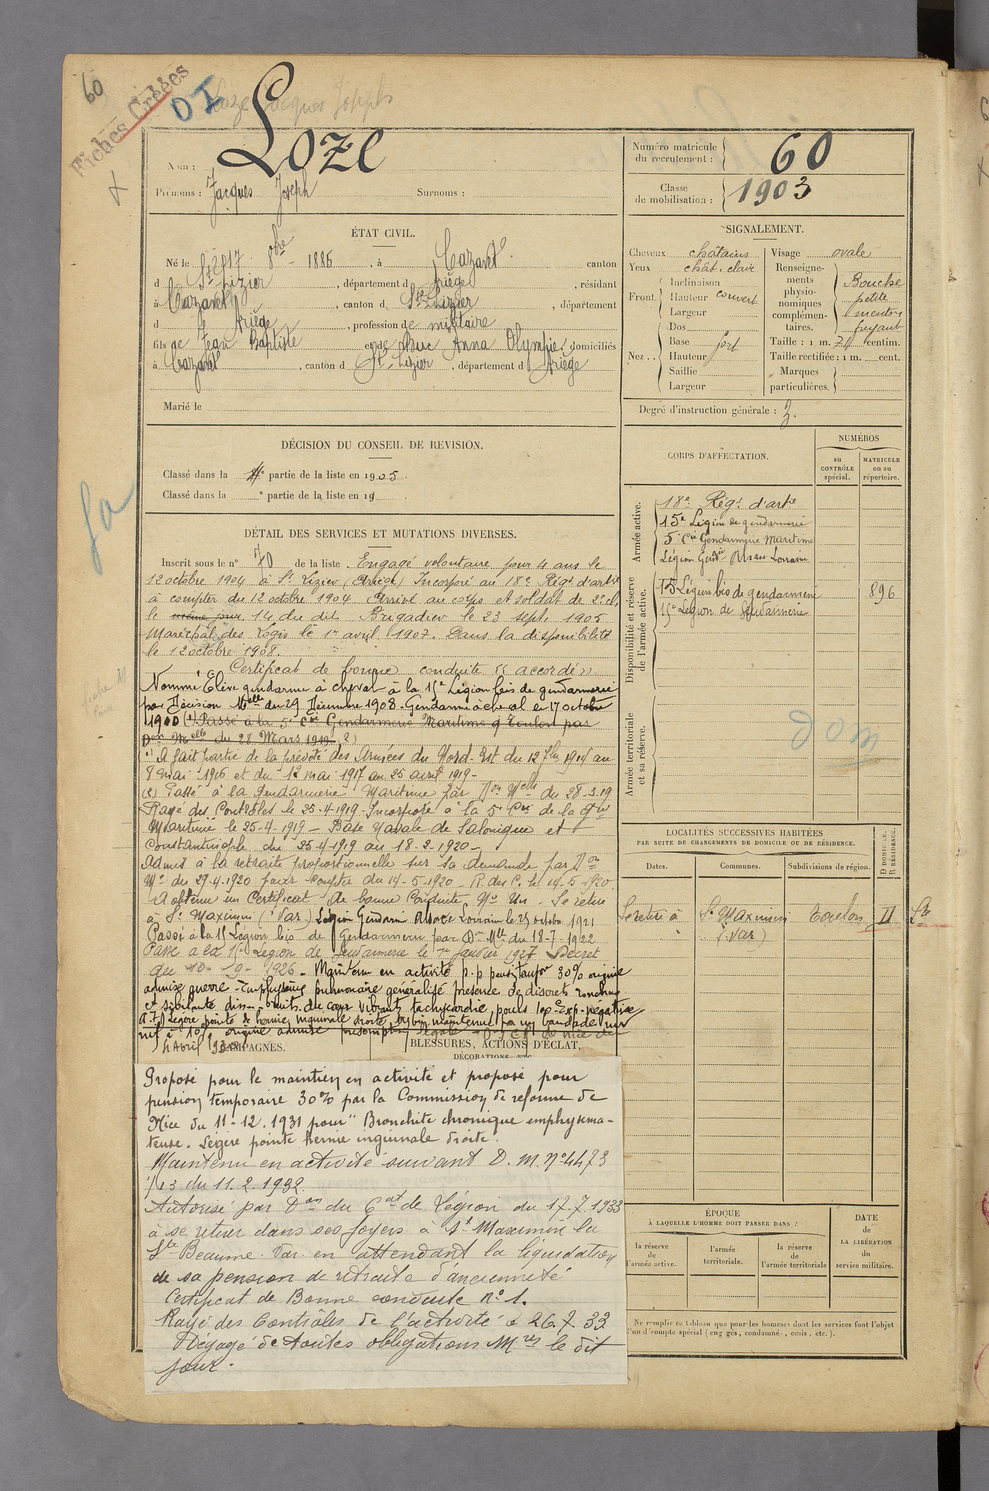 60
Fiches Créées
DI
Loze Jacques Joseph
Nom : Loze
Prénoms : Jacques Joseph Surnoms :
Numéro matricule du recrutement : 60
Classe de mobilisation : 1903
ÉTAT CIVIL.
Né le 17 8bre 1886, à Cazavet canton
d St Lizier, département d Ariège, résidant
à Cazavet, canton d St Lizier, département
d Ariège, profession de militaire
fils de Jean Baptiste et de Anna Olympie, domiciliés
à Cazavet, canton d St Lizier, département d Ariège
Marié le
SIGNALEMENT.
Cheveux châtains
Yeux chât. clair
Front Inclinaison
Hauteur couvert
Largeur
Nez Dos
Base fort
Hauteur
Saillie
Largeur
Visage ovale
Renseignements physionomiques complémentaires. Bouche petite menton fuyant
Taille : 1 m. 71 centim.
Taille rectifiée : 1 m. cent.
Marques particulières.
Degré d'instruction générale : 3.
DÉCISION DU CONSEIL DE REVISION.
Classé dans la e partie de la liste en 1905
Classé dans la e partie de la liste en 19
DÉTAIL DES SERVICES ET MUTATIONS DIVERSES.
Inscrit sous le n° 70 de la liste Engagé volontaire pour 4 ans le
12 octobre 1904 à St Lizier (Ariège) Incorporé au 18e Régt d'artie
à compter du 12 octobre 1904 Arrivé au corps et soldat de 2e cl,
le même jour 14 du dit Brigadier le 23 sept. 1905
Maréchal des logis le 1er avril 1907. Dans la disponibilité
le 12 octobre 1908.
Certificat de bonne conduite "accordé"
Nommé Elève gendarme à cheval à la 15e Légion bis de gendarmerie
par Décision Melle du 29 Décembre 1908. Gendarme à cheval le 17 octobre
1900 (1) Passé à la 5e Cie Gendarmerie Maritime à Toulon par
Don Melle du 28 Mars 1919 (2)
(1) A fait partie de la prévôté des Armées du Nord Est du 12 7bre 1914 au
8 mai 1916 et du 12 mai 1917 au 25 avril 1919 -
(2) Passé à la Gendarmerie Maritime par Don Melle du 28-3-19
Rayé des Contrôles le 25-4-1919. Incorporé à la 5e Cie de la Gie
Maritime le 25-4-1919 - Base Navale de Salonique et
Constantinople du 25-4-1919 au 18-2-1920 -
Admis à la retraite proportionnelle sur sa demande par Don
Mle du 29-4-1920 pour compter du 14-5-1920 - R. des C. le 14-5-1920
A obtenu un Certificat de bonne Conduite. Se retire
à St Maximin (Var) Légion Gendarm Alsace Lorraine le 25 octobre 1921
Passé à la 15 Légion bis de Gendarmerie par Don Mlle du 18-7-1922
Passé à la 15e Légion de Gendarmerie le 1er Janvier 1927 Décret
du 10-9-1926. Maintenu en activité p.p. pens. temp. 30% origine
admise guerre - Emphysème pulmonaire généralisé présence de discrets ronchus
et sibilants bruits du cœur vibrants tachycardie, pouls
Légère pointe de hernie inguinale droite, bien maintenue par un bandage
10% origine admise
4 Avril 1930
CAMPAGNES.
BLESSURES, ACTIONS D'ÉCLAT,
DÉCORATIONS, ETC.
Proposé pour le maintien en activité et proposé pour
pension temporaire 30% par la Commission de réforme de
Nice du 11-12-1931 pour "Bronchite chronique emphysema-
teuse. Légère pointe hernie inguinale droite.
Maintenu en activité suivant D.M. n° 4473
1/13 du 11.2.1932.
Autorisé par Don du Gal de Légion du 17.7.1933
à se retirer dans ses foyers à St Maximin la
Ste Beaume Var en attendant la liquidation
de sa pension de retraite d'ancienneté
Certificat de Bonne conduite n° 1.
Rayé des Contrôles de l'activité le 26.7.33
Dégagé de toutes obligations Mres le dit
jour.
CORPS D'AFFECTATION.
NUMÉROS
au CONTRÔLE spécial.
MATRICULE ou au RÉPERTOIRE.
Armée active.
18e Régt d'artie
15e Légion de gendarmerie
5e Cie Gendarmerie Maritime
Légion Gendie Alsace Lorraine
Disponibilité et réserve de l'armée active.
15 Légion bis de gendarmerie 896
15e Légion de Gendarmerie
Armée territoriale et sa réserve.
Dom
LOCALITÉS SUCCESSIVES HABITÉES
PAR SUITE DE CHANGEMENTS DE DOMICILE OU DE RÉSIDENCE.
Dates. Communes. Subdivisions de région. D DOMICILE. R RÉSIDENCE.
Se retire à St Maximin (Var) Toulon D
ÉPOQUE
À LAQUELLE L'HOMME DOIT PASSER DANS :
la réserve de l'armée active.
l'armée territoriale.
la réserve de l'armée territoriale
DATE de LA LIBÉRATION du service militaire.
Ne remplir ce tableau que pour les hommes dont les services font l'objet
d'un décompte spécial (engagés, condamnés, omis, etc.).